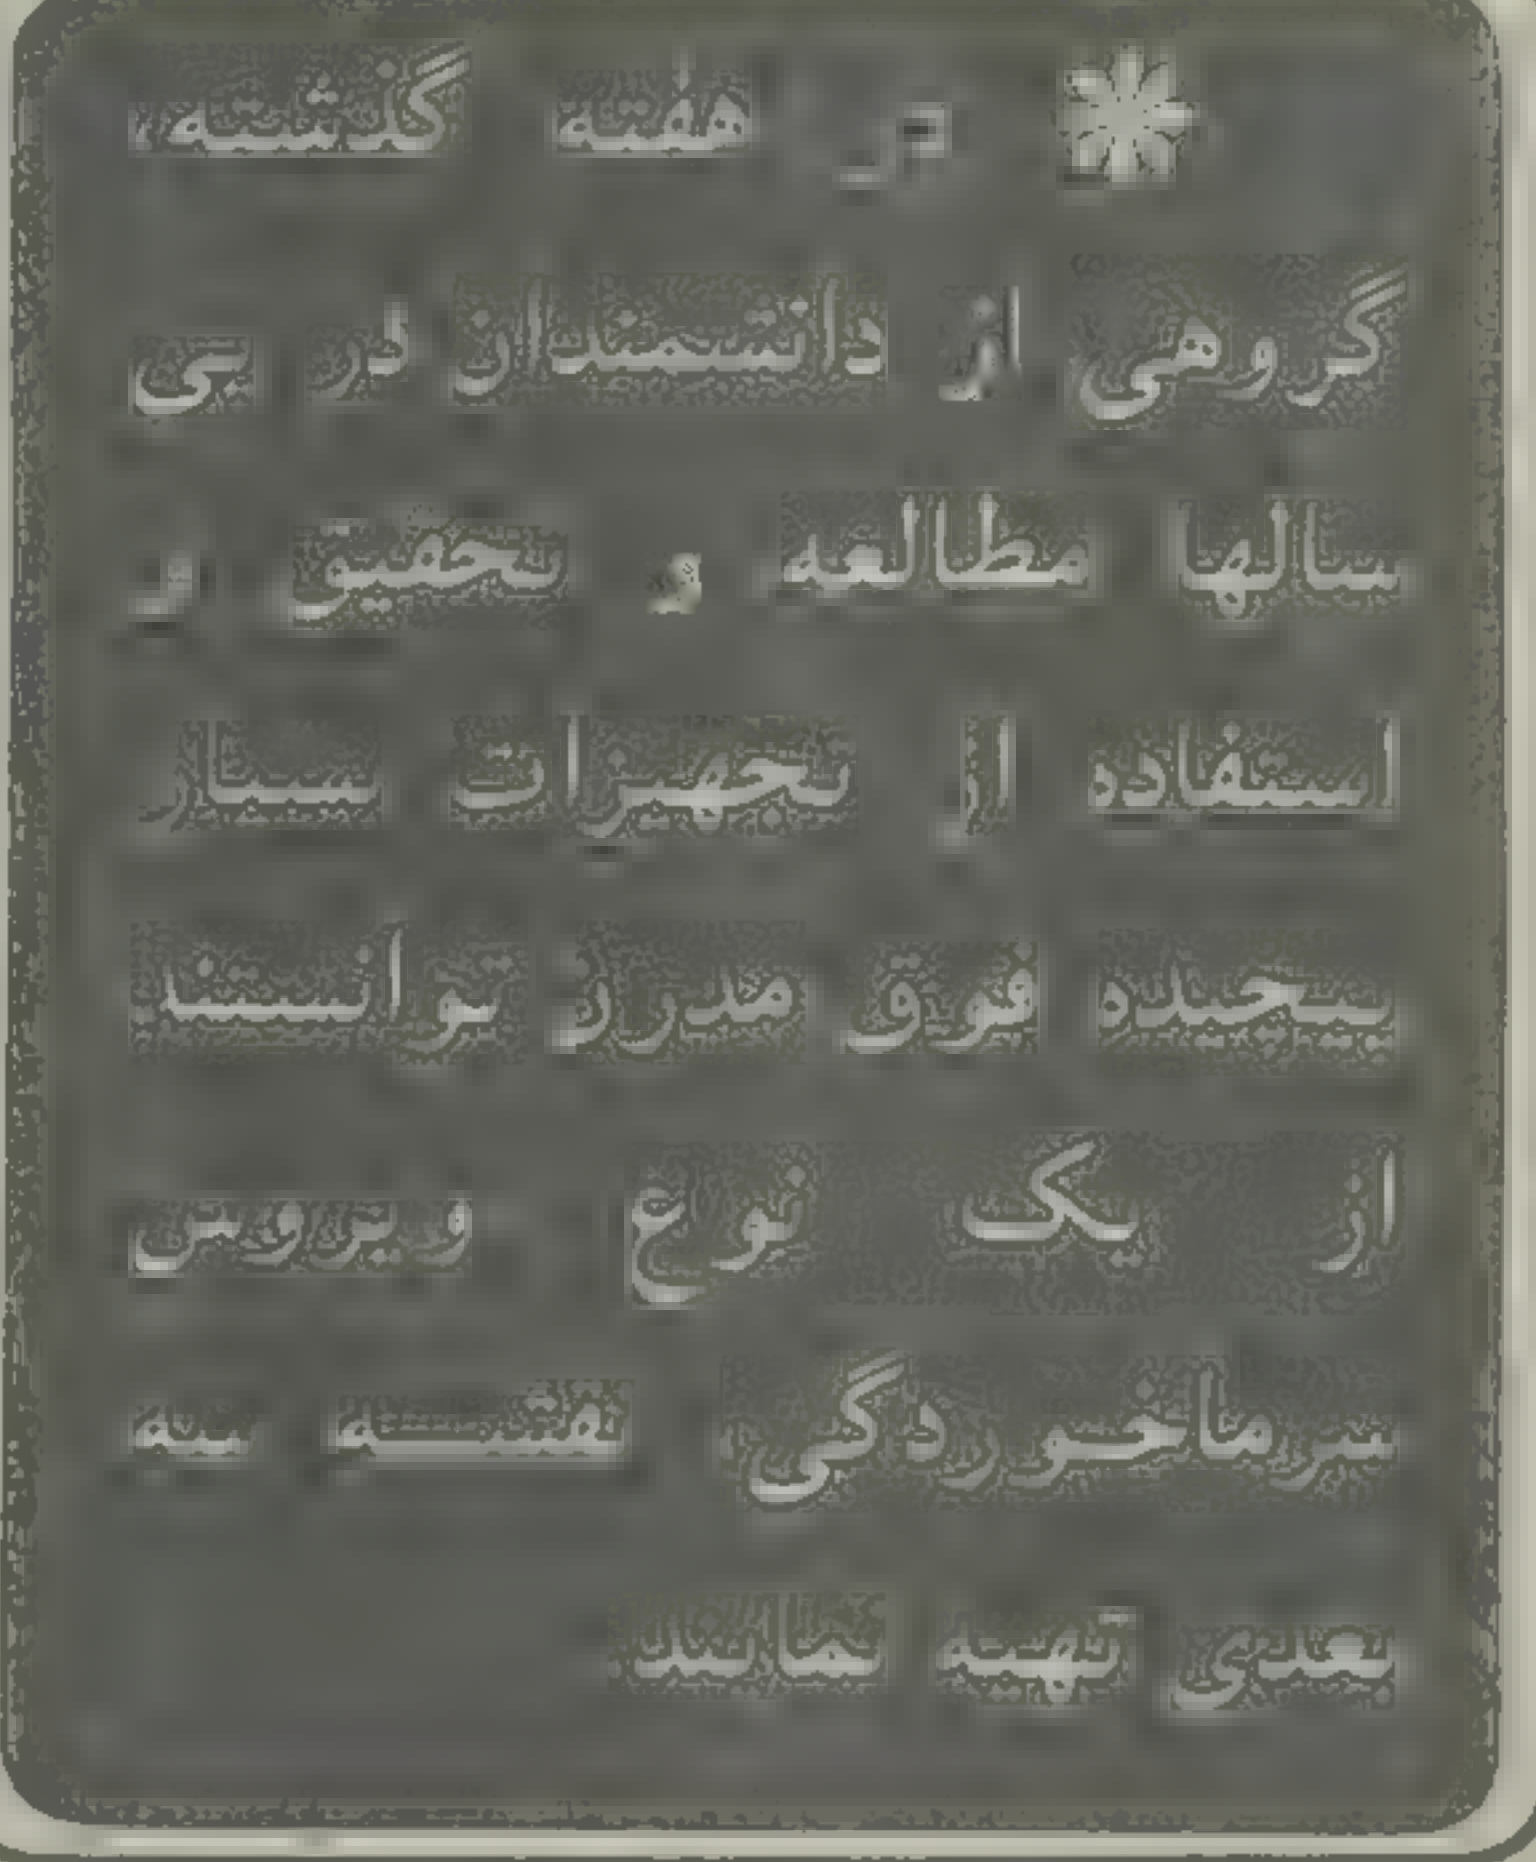 در هفته گذشته
گروهی از دانشمندان در پی
سالها مطالعه و تحقیق و
استفاده از تجهیزات بسیار
پیچیده فوق مدرن توانستند
از یک نوع ویروس
سرماخوردگی نقشه سه
بعدی تهیه نمایند